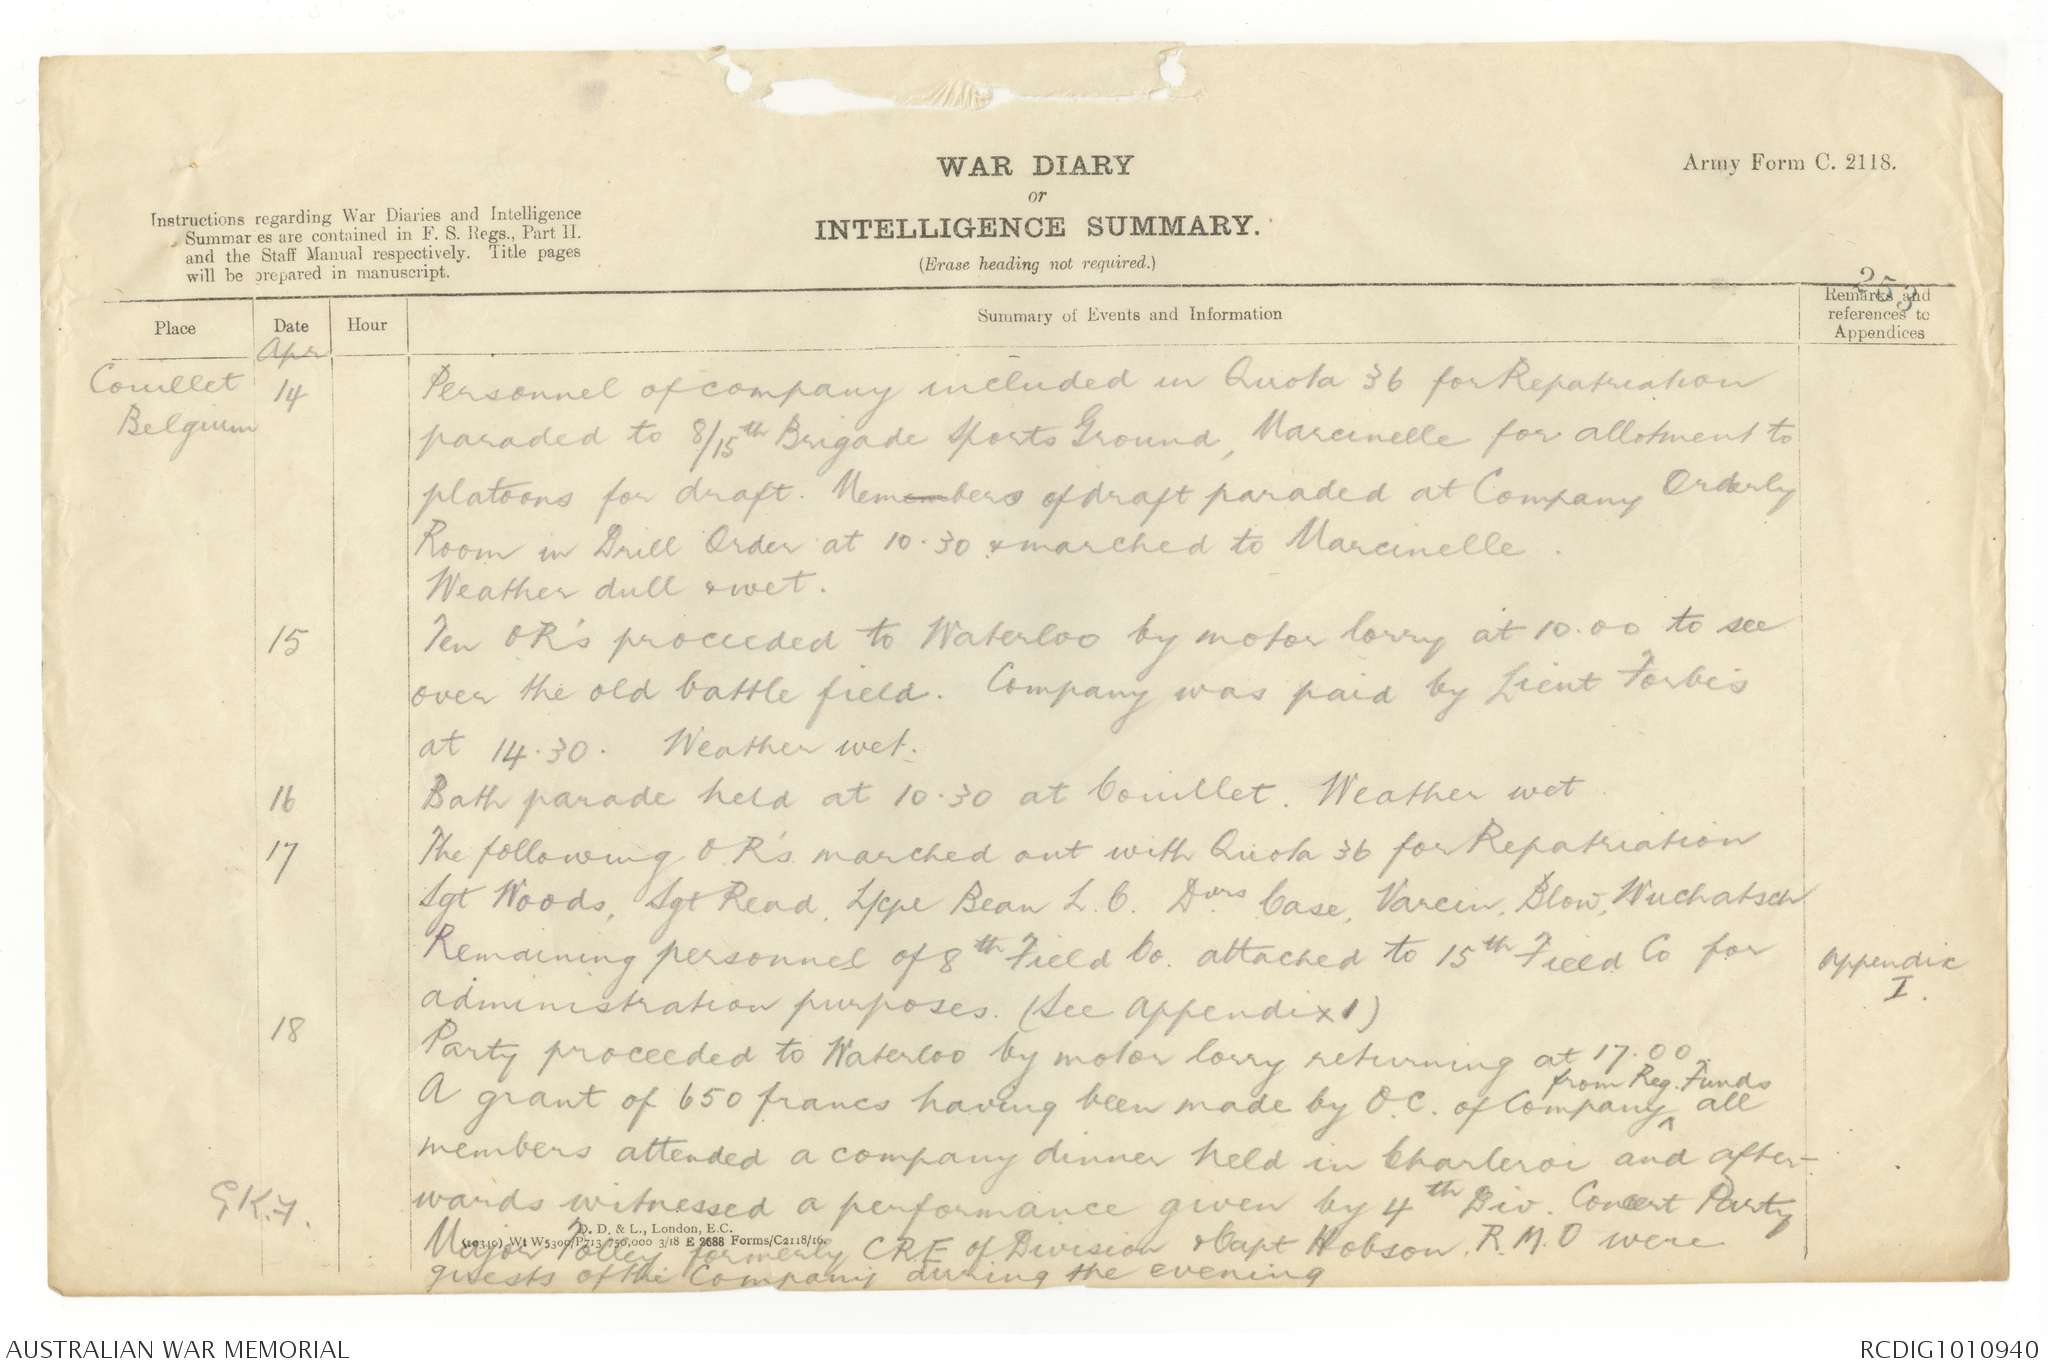 WAR DIARY
or
INTELLIGENCE SUMMARY.
(Erase heading not required.)
Army Form C. 2118.
Instructions regarding War Diaries and Intelligence
Summaries are contained in F. S. Regs., Part II.
and the Staff Manual respectively. Title pages
will be prepared in manuscript.
253
Place
Date
Hour
Summary of Events and Information
Remarks and
references to
Appendices
Apr
Couillet
Belgium
14
Personnel of company included in Quota 36 for Repatriation
paraded to 8/15th Brigade Sports Ground, Marcinelle for allotment to
platoons for draft. Members of draft paraded at Company Orderly
Room in Drill Order at 10.30 & marched to Marcinelle.
Weather dull & wet.
15
Ten OR's proceeded to Waterloo by motor lorry at 10.00 to see
over the old battle field. Company was paid by Lieut Forbes
at 14.30. Weather wet.
16
Bath parade held at 10.30 at Couillet. Weather wet
17
The following OR's marched out with Quota 36 for Repatriation
Sgt Woods, Sgt Read, L/cpl Bean L.C. Dvrs Case, Varcin, Blow, Wuchatsch
Remaining personnel of 8th Field Co. attached to 15th Field Co for
administration purposes. (See Appendix 1)
Appendix
I.
18
Party proceeded to Waterloo by motor lorry returning at 17.00.
from Reg. Funds
A grant of 650 francs having been made by O.C. of Company ^ all
members attended a company dinner held in Charleroi and after-
wards witnessed a performance given by 4th Div. Concert Party
Major Tolley formerly CRE of Division & Capt Hobson. R.M.O were
guests of the Company during the evening
D. D. & L., London, E.C.
(10340) Wt W5300/P713 750,000 3/18 E 2688 Forms/C2118/16.
AUSTRALIAN WAR MEMORIAL
RCDIG1010940